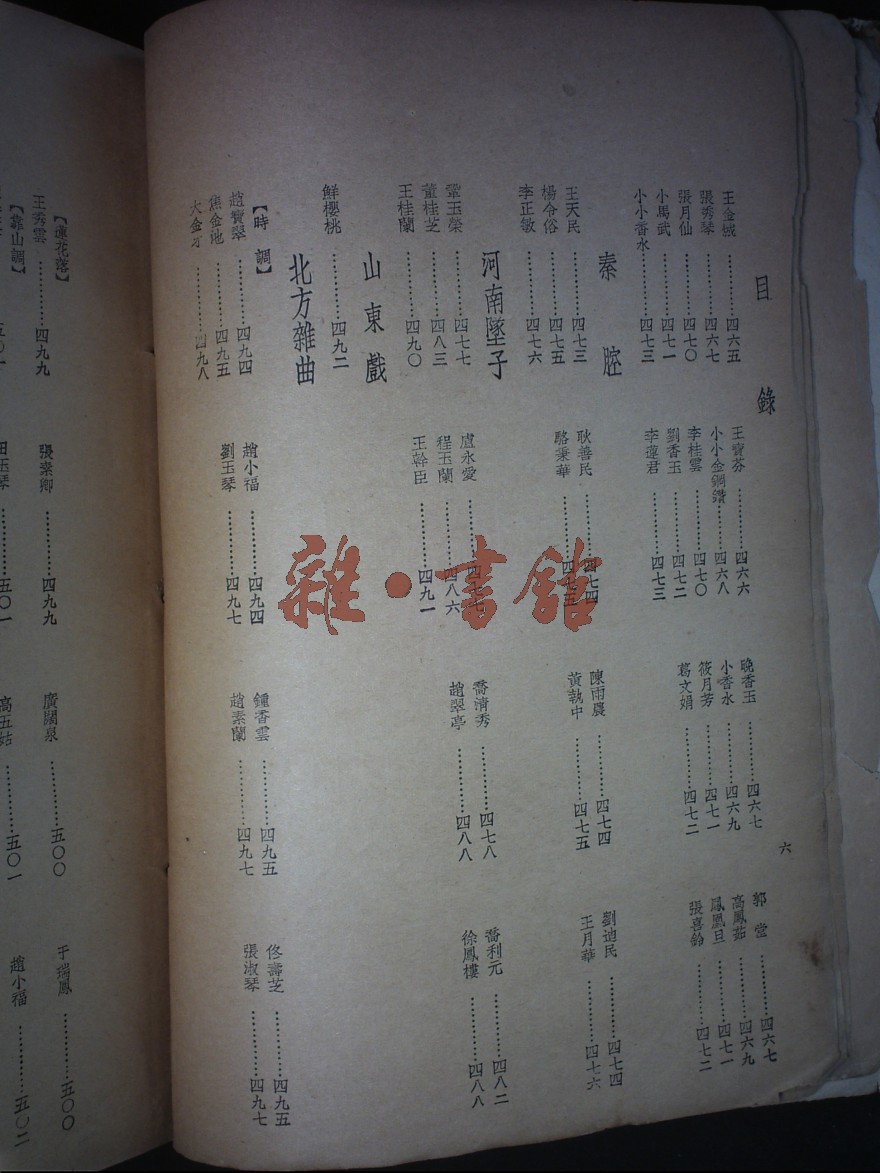 目錄
六
王金城…………四六五
王寶芬…………四六六
晚香玉…………四六七
郭堂…………四六七
張秀琴…………四六七
小小金鋼鑽…………四六八
小香水…………四六九
高鳳茹…………四六九
張月仙…………四七〇
李桂雲…………四七〇
筱月芳…………四七一
鳳凰旦…………四七一
小馬武…………四七一
劉香玉…………四七二
葛文娟…………四七二
張喜鈴…………四七二
小小香水…………四七三
李蓮君…………四七三
秦腔
王天民…………四七三
耿善民…………四七四
陳雨農…………四七四
劉迪民…………四七四
楊令俗…………四七五
駱秉華…………四七五
黃執中…………四七五
王月華…………四七六
李正敏…………四七六
河南墜子
鞏玉榮…………四七七
盧永愛…………四七七
喬清秀…………四七八
喬利元…………四八二
董桂芝…………四八三
程玉蘭…………四八六
趙翠亭…………四八八
徐鳳樓…………四八八
王桂蘭…………四九〇
王幹臣…………四九一
山東戲
鮮櫻桃…………四九二
北方雜曲
【時調】
趙寶翠…………四九四
趙小福…………四九四
鍾香雲…………四九五
佟壽芝…………四九五
焦金池…………四九五
劉玉琴…………四九七
趙素蘭…………四九七
張淑琴…………四九七
大金牙…………四九八
【蓮花落】
王秀雲…………四九九
張素卿…………四九九
廣闊泉…………五〇〇
于瑞鳳…………五〇〇
【靠山調】
五〇一
田玉琴…………五〇一
高五姑…………五〇一
趙小福…………五〇二
雜·書館